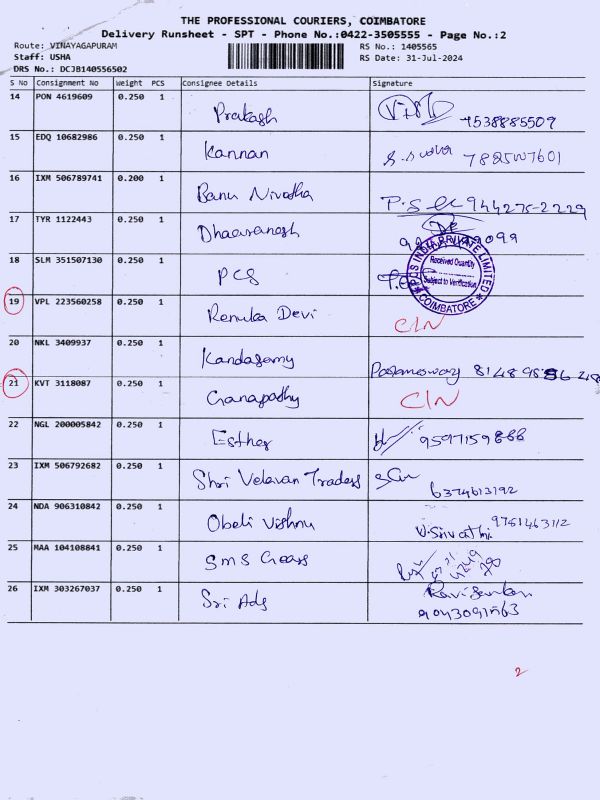 THE PROFESSIONAL COURIERS, COIMBATORE
Delivery Runsheet - SPT - Phone No.:0422-3505555 - Page No.:2
Route: VINAYAGAPURAM RS No.: 1405565
Staff: USHA RS Date: 31-Jul-2024
DRS No.: DCJB140556502
S No Consignment No Weight PCS Consignee Details Signature
14 PON 4619609 0.250 1 Prakash 7538885509
15 EDQ 10682986 0.250 1 Kannan
16 IXM 506789741 0.200 1 Banu Nivatha 944275-2229
17 TYR 1122443 0.250 1 Dhaaranesh
18 SLM 351507130 0.250 1 PCS
PCS INDIA PRIVATE LIMITED
Received Quantity
Subject to Verification
COIMBATORE
19 VPL 223560258 0.250 1 Renuka Devi C/N
20 NKL 3409937 0.250 1 Kandasamy
21 KVT 3118087 0.250 1 Ganapathy C/N
22 NGL 200005842 0.250 1 Esther
23 IXM 506792682 0.250 1 Shri Velavan Traders 6374613192
24 NDA 906310842 0.250 1 Obeli Vishnu
25 MAA 104108841 0.250 1 SMS Gears
26 IXM 303267037 0.250 1 Sri Ads
2